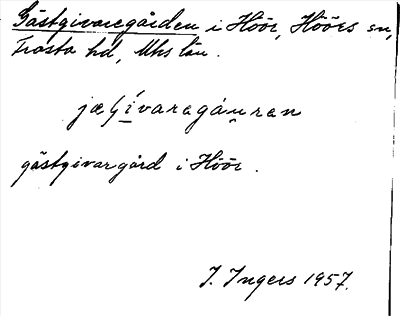 Gästgivaregården i Höör, Höörs sn,
Frosta hd, Mhs län.
gästgivargård i Höör.
I. Ingers 1957.